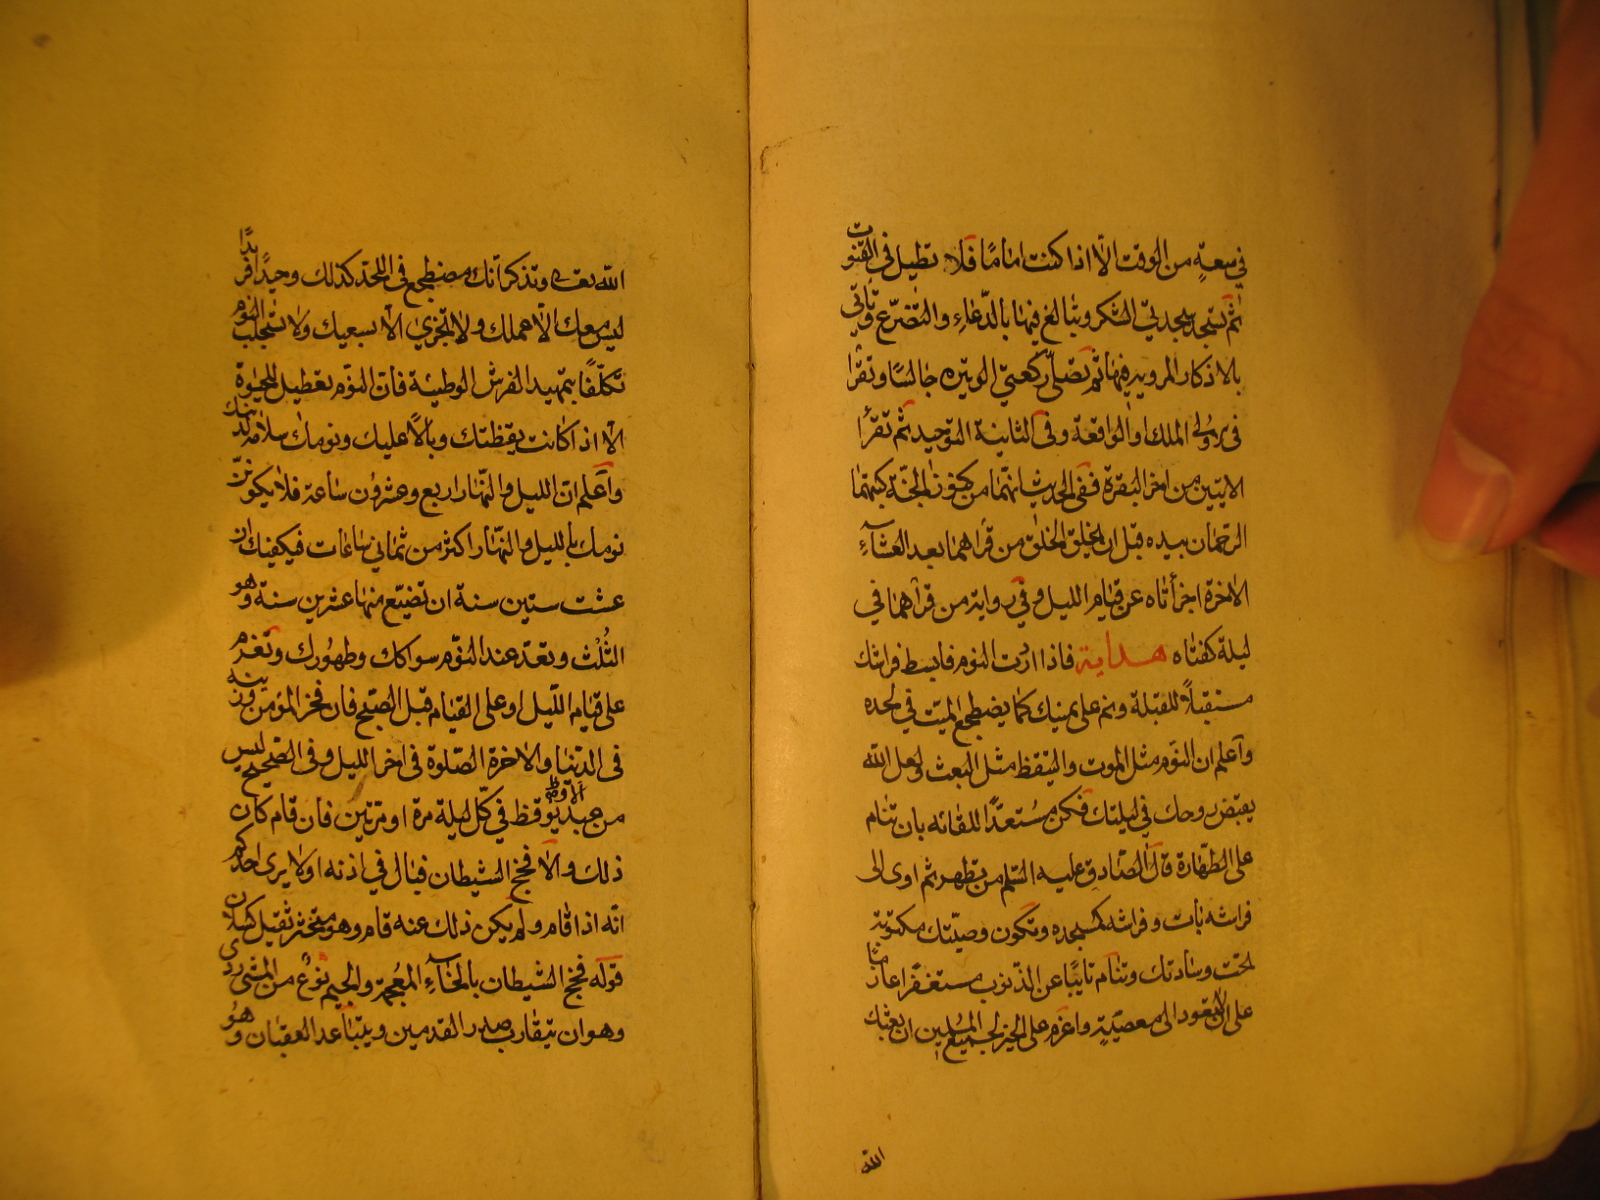 في سعةٍ من الوقت الّا اذا كنت امامًا فلا تطيل في القنوت
ثم تسجد سجدتي الشكر وتبالغ فيها بالدّعاءِ والتّضرّع وتأتي
بالاذكار المروية فيها ثم تصلّي ركعتي الوتيره جالسًا وتقرا
في الاولى الملك او الواقعة وفي الثانية التوحيد ثم تقرأ
الايتين من اخر البقرة ففي الحديث انهما من كنوز الجنّة كتبهما
الرحمان بيده قبل ان يخلق الخلق من قرأهما بعد العشاءِ
الاخرة اجزأتاه عن قيام الليل وفي رواية من قرآهما في
ليلة كفتاه هداية فاذا اردت النوم فابسط فراشك
مستقبلاً للقبلة ونم على يمينك كما يضطجع الميّت في لحده
واعلم ان النوم مثل الموت والتيقظ مثل البعث ولعل الله
يقبض روحك في ليلتك فكن مُستعدًّا للقائه بان تنام
على الطّهارة قال الصّادق عليه السّلم من تطهر ثم اوى الى
فراشه بات وفراشه كمسجده وتكون وصيّتك مكتوبة
تحت وسادتك وتنام تايبًا عن الذّنوب مستغفرًا عازمًا
على ان لا تعود الى معصيةٍ واعزم على الخير لجميع المسلمين ان بعثك
الله
الله تعالى وتذكر انك مضطجع في اللحد كذلك وحيدًا فريدًا
ليس معك الّا عملك ولا تجزي الّا بسعيك ولا تستجلب النوم
تكلّفًا بتمهيد الفرش الوطيئة فانّ النوم تعطيل للحيوة
الّا اذا كانت يقظتك وبالًا عليك ونومك سلامة لدينك
واعلم انّ الليل والنّهار اربع وعشرون ساعة فلا يكوننّ
نومك بالليل والنّهار اكثر من ثماني ساعات فيكفيك ان
عشت ستين سنة ان تضيّع منها عشرين سنة وهو
الثُلث وتعدّ عند النوم سواكك وطهُورك وتعزم
على قيام اللّيل او على القيام قبل الصّبح فان فخر المؤمن وزينه
في الدّنيا والاخرة الصّلوة في اخر الليل وفي الصّحيح ليس
من عبد الّا ويوقظ في كلّ ليلة مرة او مرتين فان قام كان
ذلك والّا فجخ الشيطان فبال في اذنه اولا يرى احدكم
انّه اذا قام ولم يكن ذلك عنه قام وهو متخثر ثقيل كسلان
قوله فجخ الشيطان بالخاءِ المعجمة والجيم نوع من المشي ردى
وهو ان يتقارب صدر القدمين ويتباعد العقبان وهُو